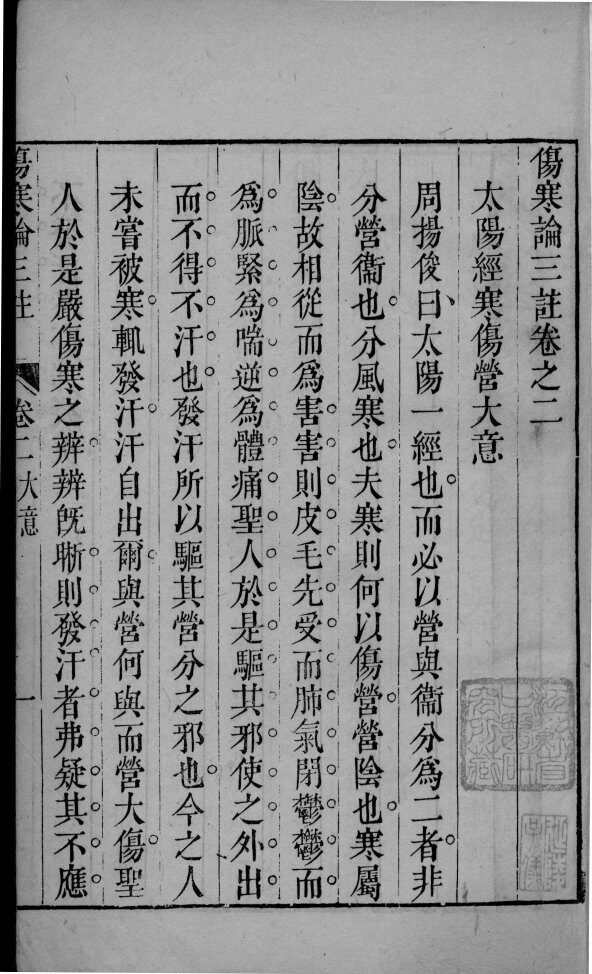 傷寒論三註卷之二
太陽經寒傷營大意
周揚俊曰太陽一經也而必以營與衞分爲二者非
分營衞也分風寒也夫寒則何以傷營營陰也寒屬
陰故相從而爲害害則皮毛先受而肺氣閉鬱鬱而
爲脈緊爲喘逆爲體痛聖人於是驅其邪使之外出
而不得不汗也發汗所以驅其營分之邪也今之人
未嘗被寒輒發汗汗自出爾與營何與而營大傷聖
人於是嚴傷寒之辨辨旣晰則發汗者弗疑其不應
傷寒論三註
卷二大意
一